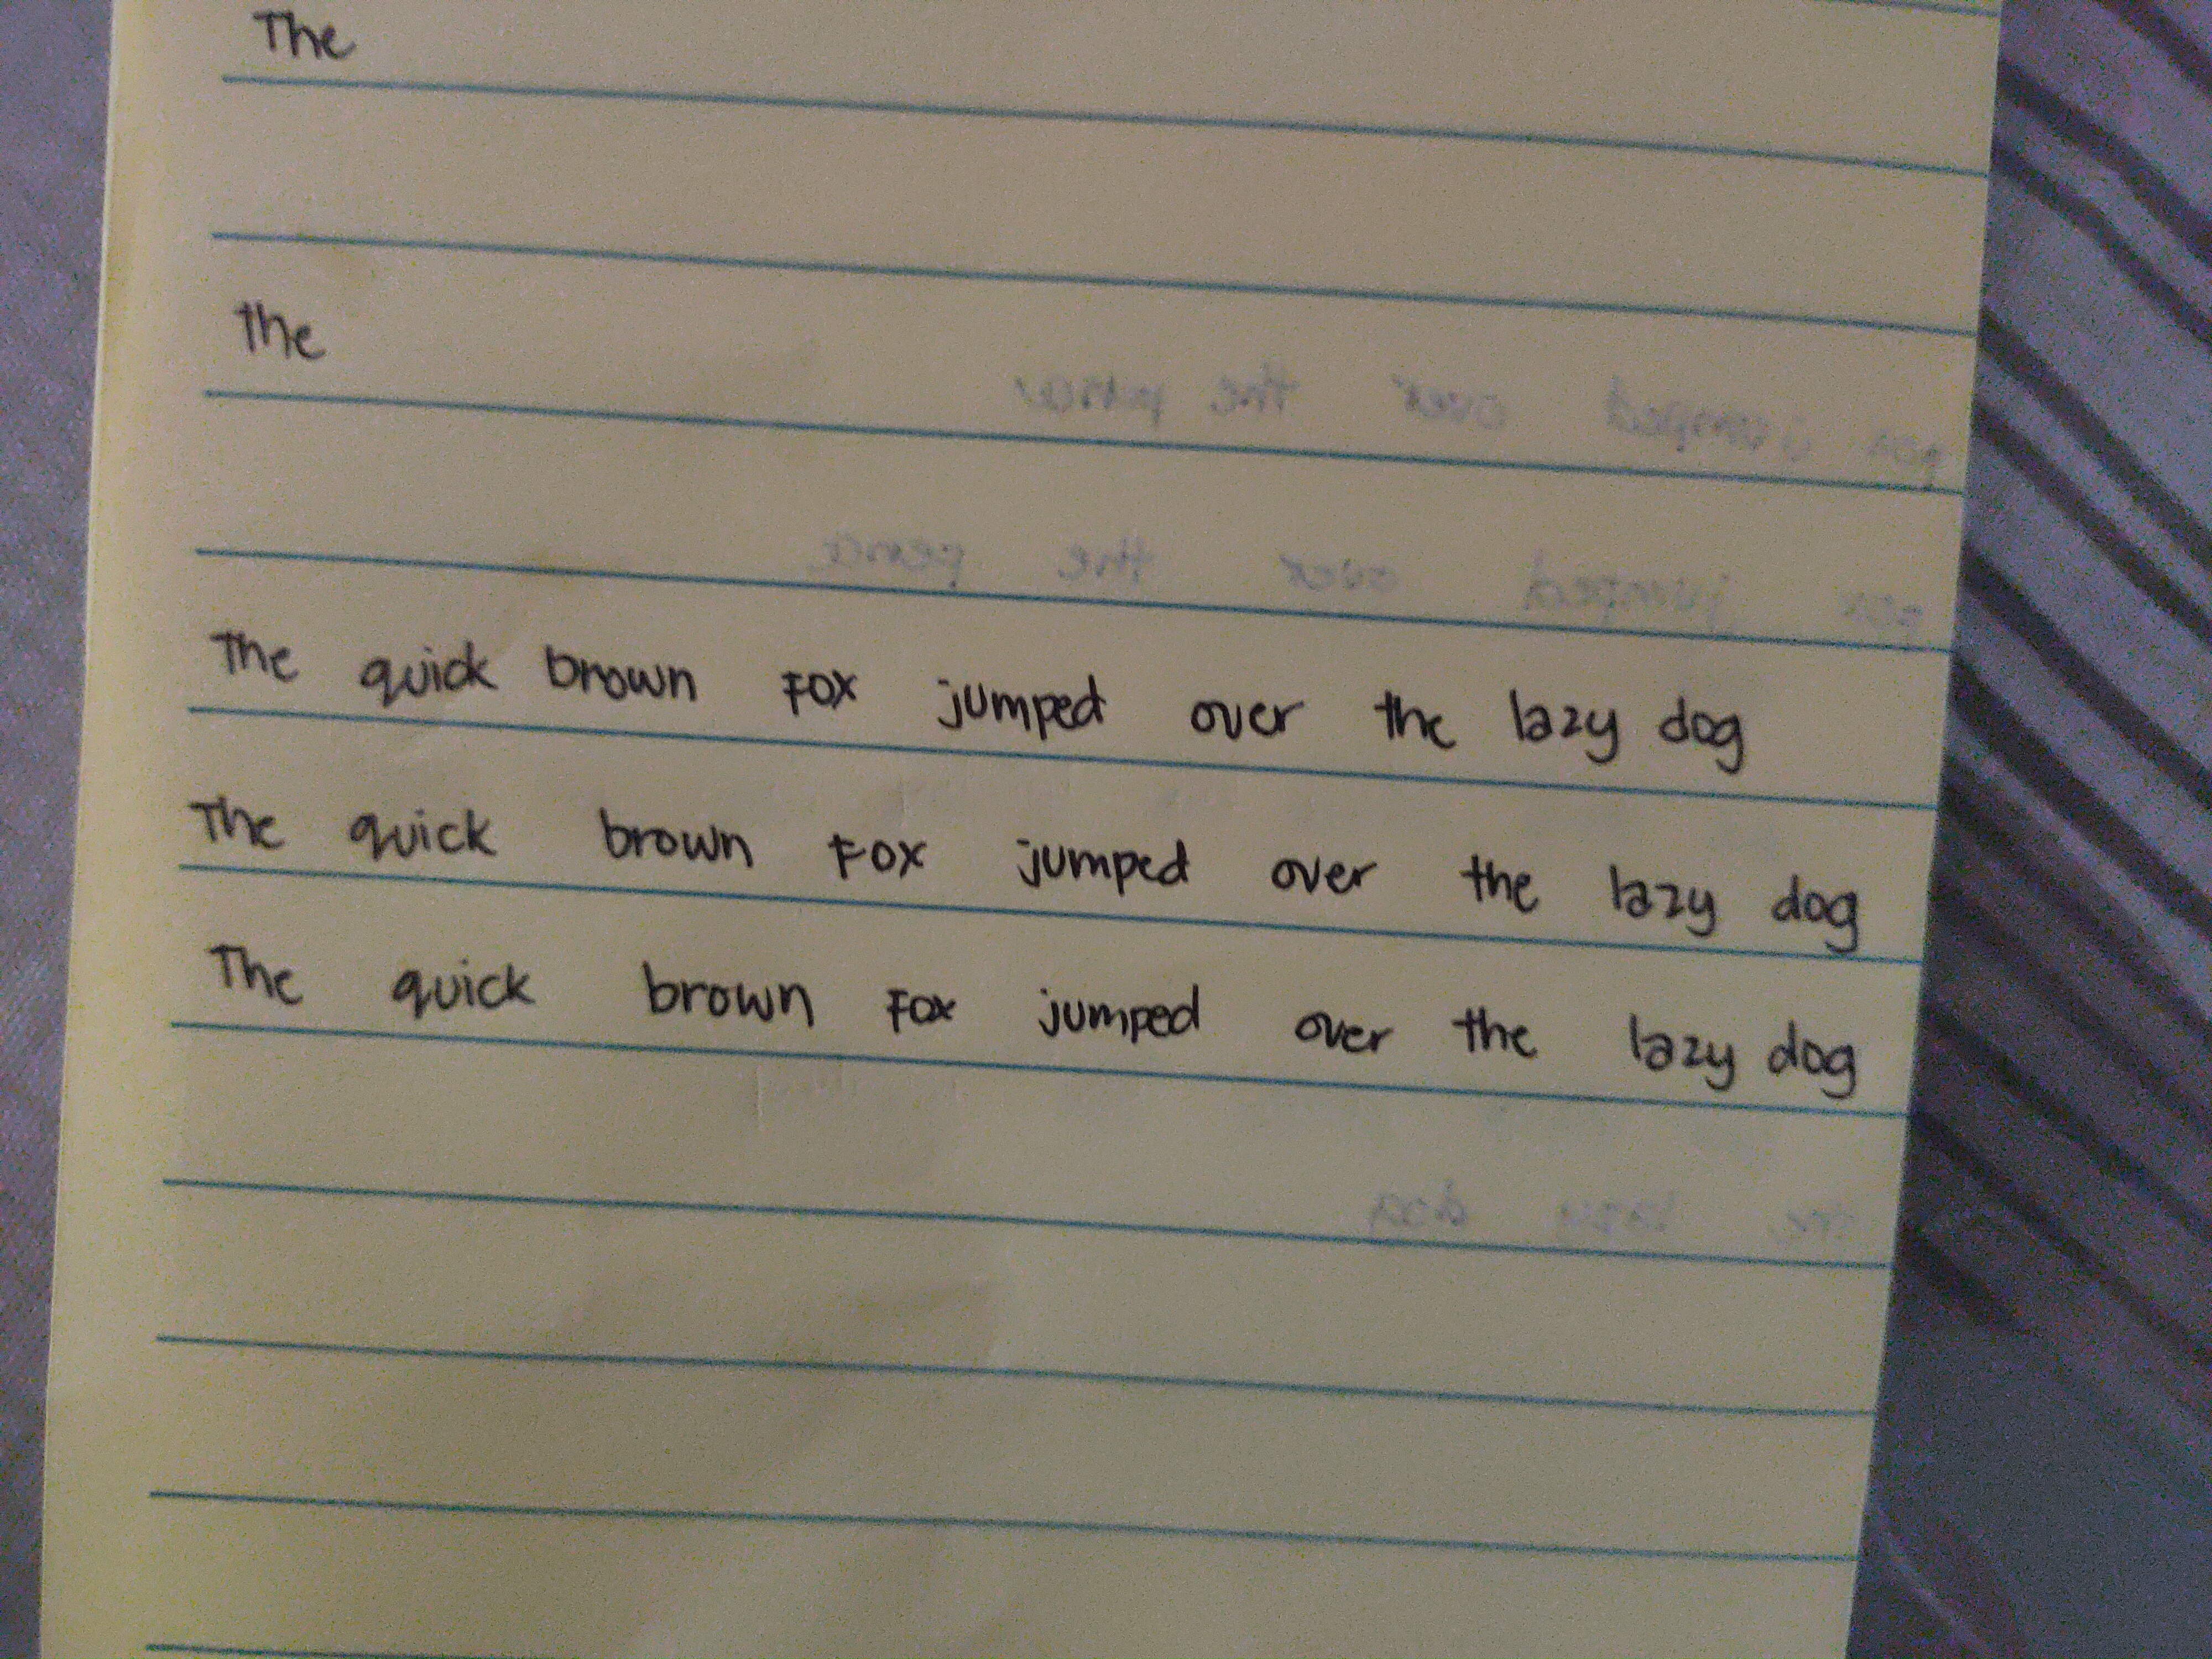 The
the
The quick brown Fox jumped over the lazy dog
The quick brown Fox jumped over the lazy dog
The quick brown Fox jumped over the lazy dog